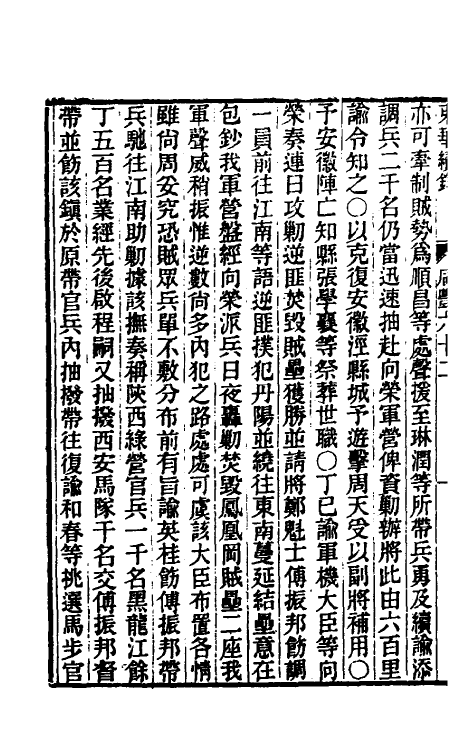 東華續錄 咸豐六十二
亦可牽制賊勢爲順昌等處聲援至琳潤等所帶兵勇及續諭添
調兵二千名仍當迅速抽赴向榮軍營俾資勦辦將此由六百里
諭令知之〇以克復安徽涇縣城予遊擊周天受以副將補用〇
予安徽陣亡知縣張學襄等祭葬世職〇丁巳諭軍機大臣等向
榮奏連日攻勦逆匪焚毀賊壘獲勝並請將鄭魁士傅振邦飭調
一員前往江南等語逆匪撲犯丹陽並繞往東南蔓延結壘意在
包鈔我軍營盤經向榮派兵日夜轟勦焚毀鳳凰岡賊壘二座我
軍聲威稍振惟逆數尙多內犯之路處處可虞該大臣布置各情
雖尙周妥究恐賊眾兵單不敷分布前有旨諭英桂飭傅振邦帶
兵馳往江南助勦據該撫奏稱陝西綠營官兵一千名黑龍江餘
丁五百名業經先後啟程嗣又抽撥西安馬隊千名交傅振邦督
帶並飭該鎮於原帶官兵內抽撥帶往復諭和春等挑選馬步官